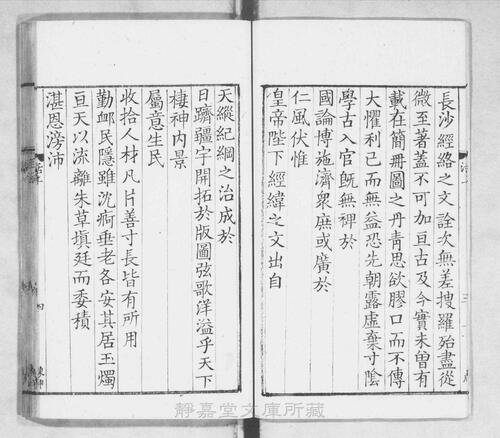 長沙經絡之文詮次無差搜羅殆盡從
微至著蓋不可加亘古及今實未曾有
載在簡冊圖之丹青思欲膠口而不傳
大懼利己而無益恐先朝露虛棄寸陰
學古入官旣無裨於
國論博施濟衆庶或廣於
仁風伏惟
皇帝陛下經緯之文出自
天縱紀綱之治成於
日躋疆宇開拓於版圖弦歌洋溢乎天下
棲神內景
屬意生民
收拾人材凡片善寸長皆有所用
勤卹民隱雖沈痾垂老各安其居玉燭
亘天以流離朱草塡廷而委積
湛恩滂沛
靜嘉堂文庫所藏